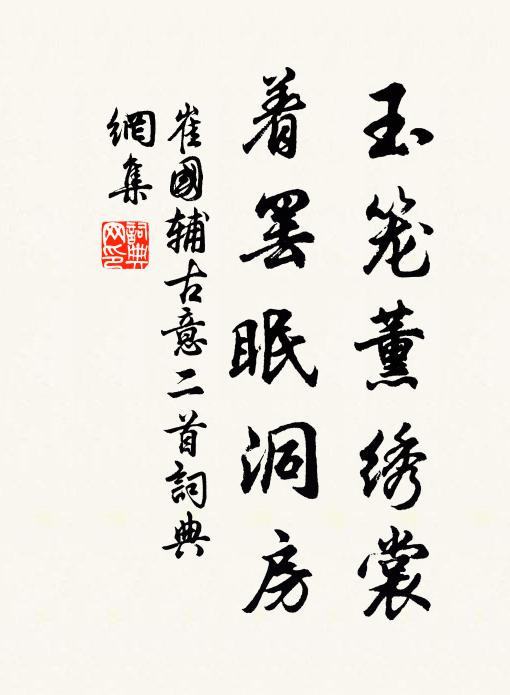 玉笼薰绣裳
着罢眠洞房
崔國辅古意二首詞典
網集
詞典
网印